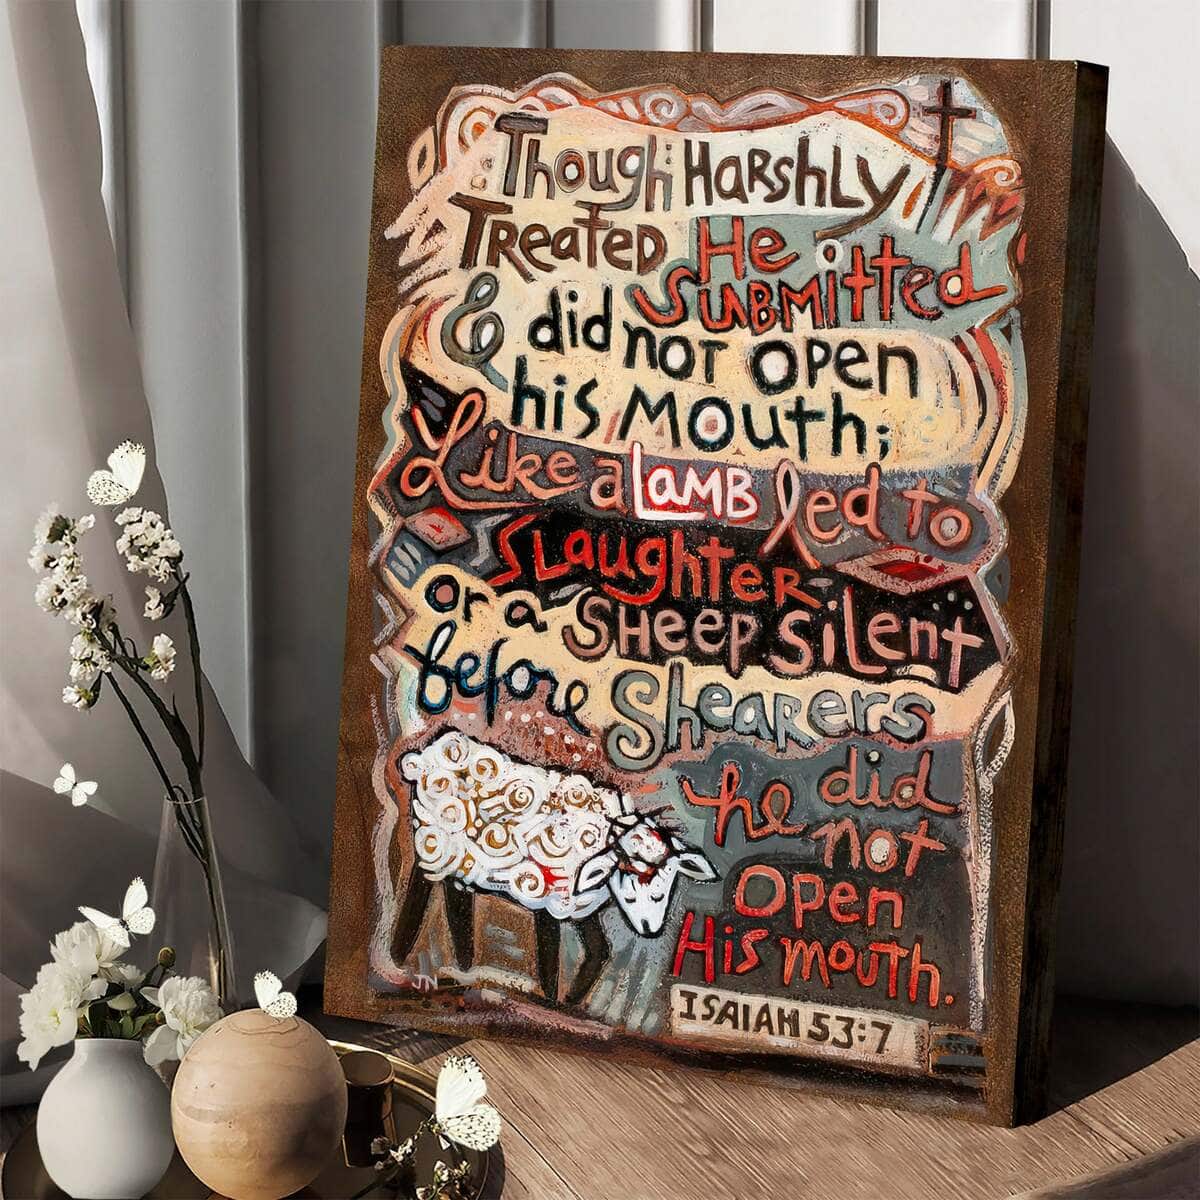 Though HARSHLY
TREATED He
SUBMITTED
& did not open
his MOUTH;
Like a LAMB led to
SLaughter-
or a SHEEP SiLent
before SheaRers
he did
not
Open
His mouth.
ISAIAH 53:7
JN